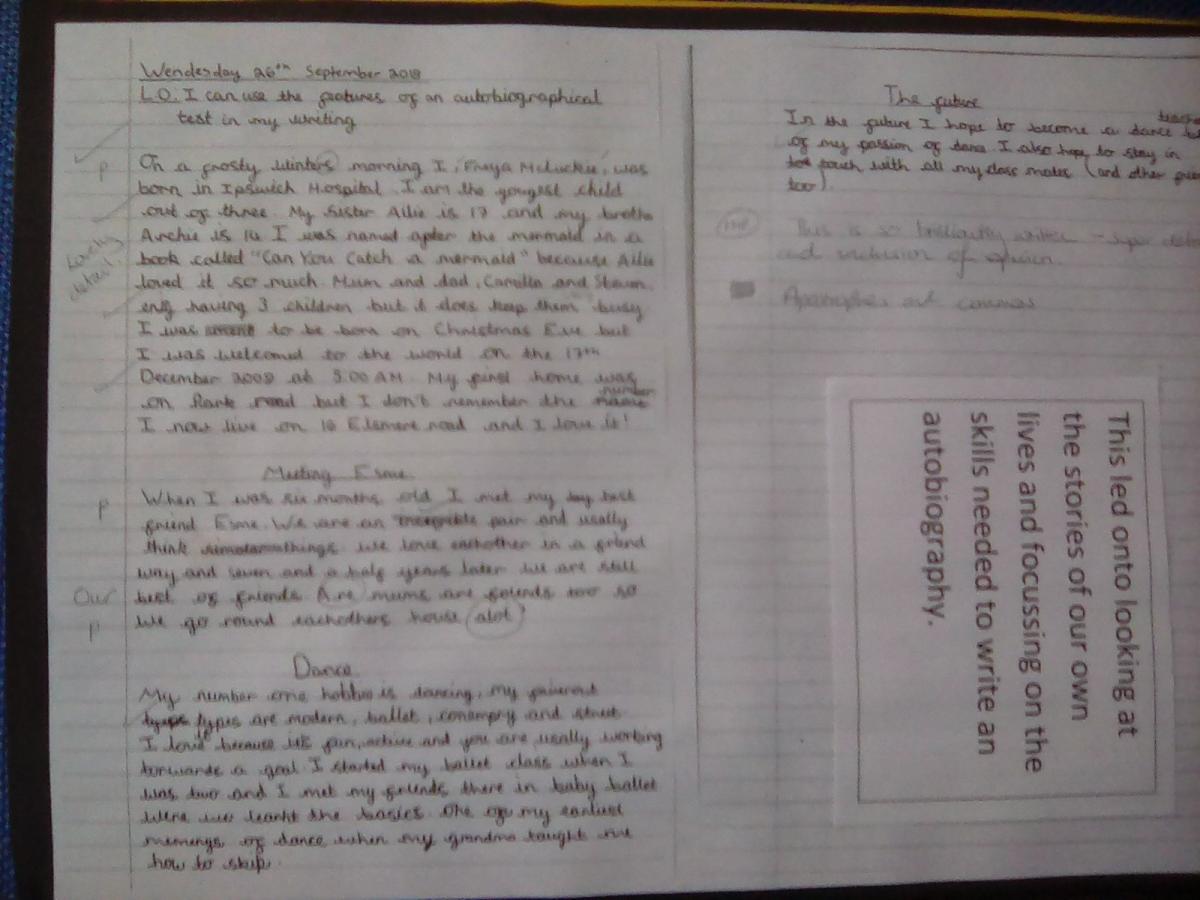 Wendesday 26th September 2018
L.O. I can use the features of an autobiographical
text in my writing
On a frosty winters morning I, Freya McLuckie, was
born in Ipswich Hospital. I am the yougest child
out of three. My Sister Ailie is 17 and my brothe
Archie is 14 I was named after the mermaid in a
Lovely detail!
book called "Can You Catch a mermaid" because Ailie
loved it so much. Mum and dad, Camilla and
enjg having 3 children but it does keep them busy
I was to be born on Christmas Eve but
I was welcomed to the world on the 17th
December 2009 at 5.00 AM. My first home was
on road but I don't remember the number
I now live on 16 road and I love it!
Meeting Esme
p
When I was six months old I met my best
friend Esme. We are an pair and usally
think things we love eachother in a friend
way and seven and a half years later we are still
Our
best of friends. Are mums are friends too so
p
we go round eachothers house alot!
Dance
My number one hobbie is dancing, my
types are modern, ballet, and street
I love it because it's fun, active and you are usally working
torwards a goal. I started my ballet class when I
was two and I met my friends there in baby ballet
were we learnt the basics. One of my earliest
of dance when my grandma taught me
how to skip.
The future
In the future I hope to become a dance
of my passion of dance. I also hope to stay in
touch with all my class mates (and other
too).
This is so brilliantly written - super
and inclusion of
Apostrophes and commas
This led onto looking at
the stories of our own
lives and focussing on the
skills needed to write an
autobiography.